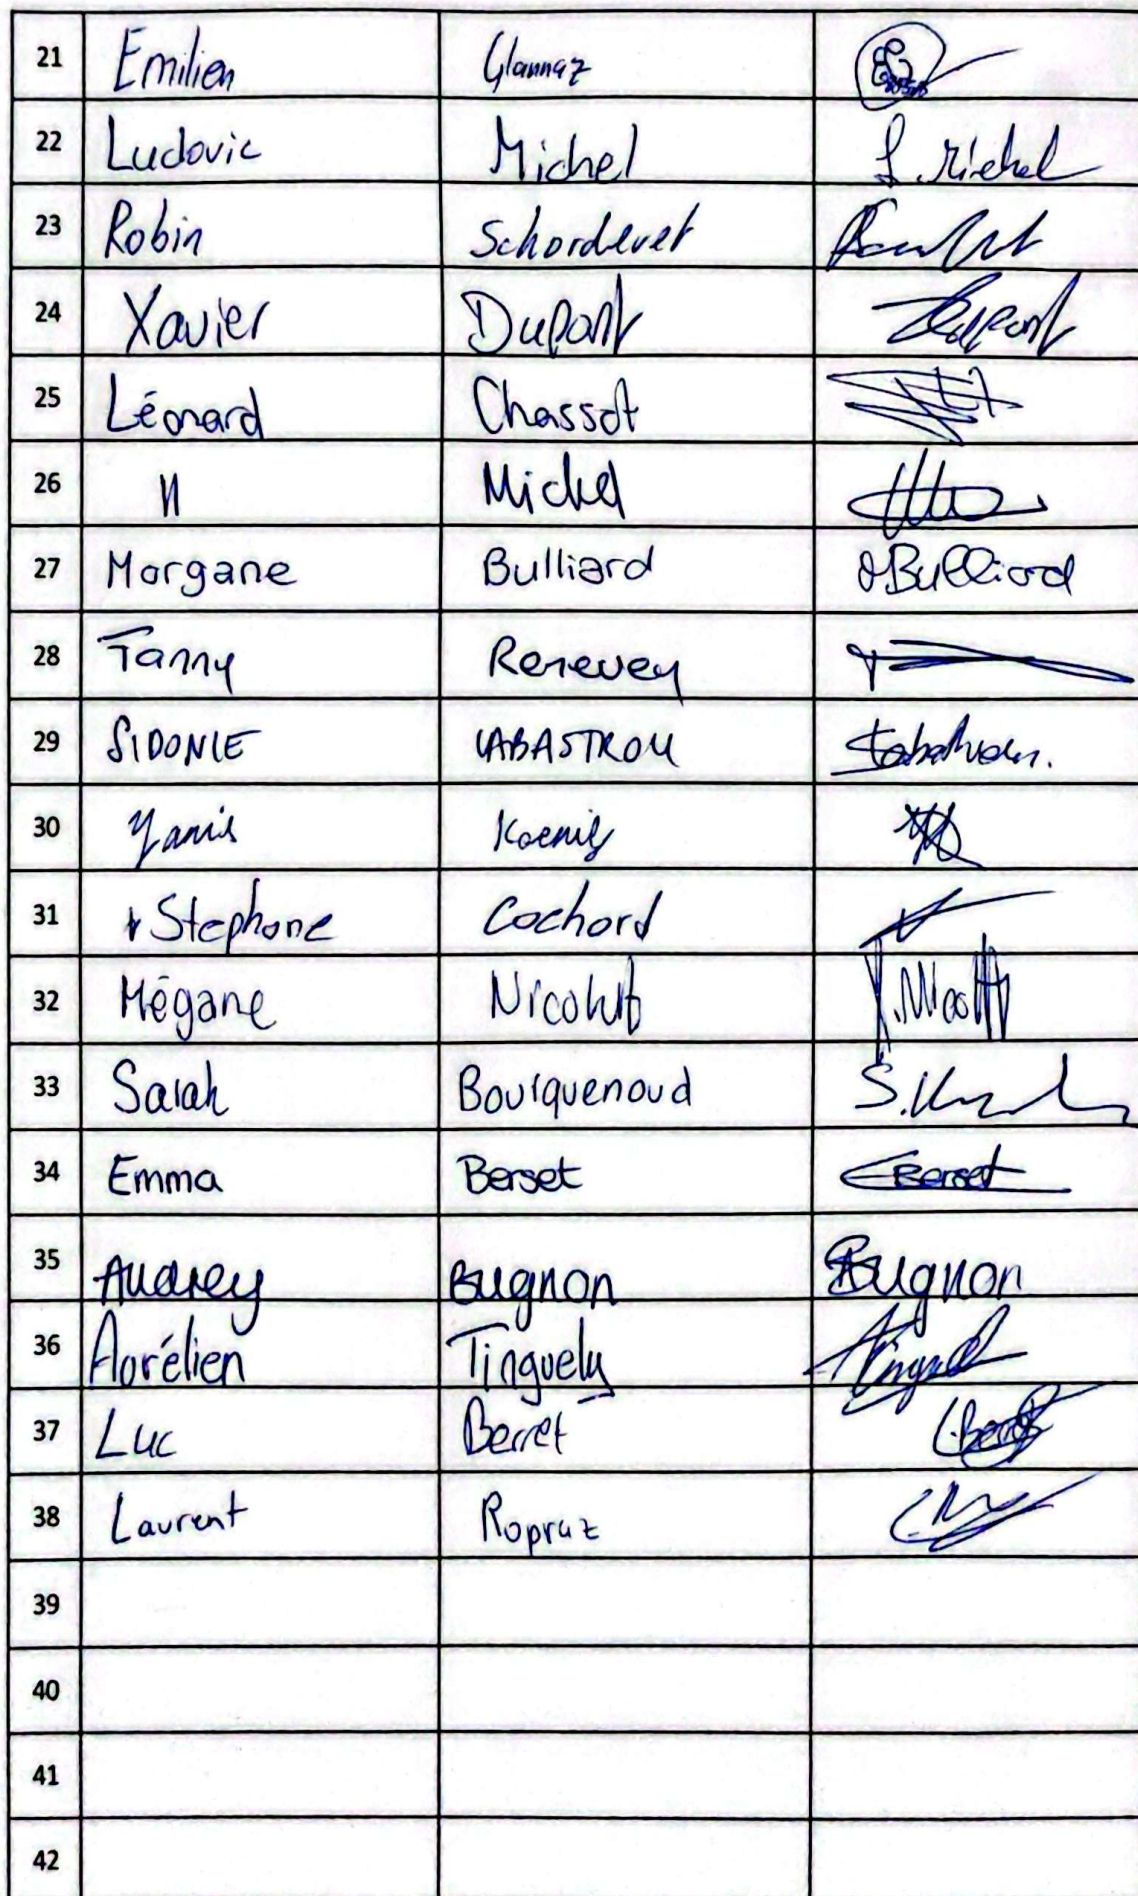 21 Emilien Glannaz
22 Ludovic Michel L. Michel
23 Robin Schorderet
24 Xavier Dupont Dupont
25 Léonard Chassot
26 " Michel
27 Morgane Bulliard MBulliard
28 Fanny Renevey
29 SIDONIE LABASTROU Labastrou.
30 Yanis Koenig
31 Stephane Cochard
32 Mégane Nicolet
33 Sarah Bourquenoud
34 Emma Berset EBerset
35 Audrey Bugnon Bugnon
36 Aurélien Tinguely
37 Luc Berret
38 Laurent Ropraz
39
40
41
42